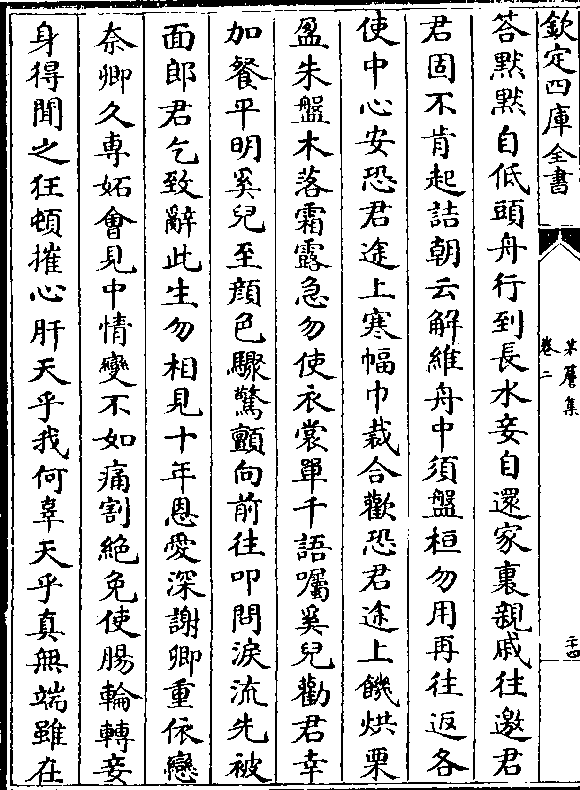 欽定四庫全書
卷二
答默默自低頭舟行到長水妾自還家裏親戚往邀君
君固不肯起詰朝云解維舟中須盤桓勿用再往返各
使中心安恐君途上寒幅巾裁合歡恐君途上饑烘栗
盈朱盤木落霜露急勿使衣裳單千語囑奚兒勸君幸
加餐平明奚兒至顔色驟驚顫向前往叩問淚流先被
面郎君乞致辭此生勿相見十年恩愛深謝卿重依戀
奈卿久專妬會見中情變不如痛割絶免使腸輪轉妾
身得聞之狂頓摧心肝天乎我何辜天乎真無端雖在